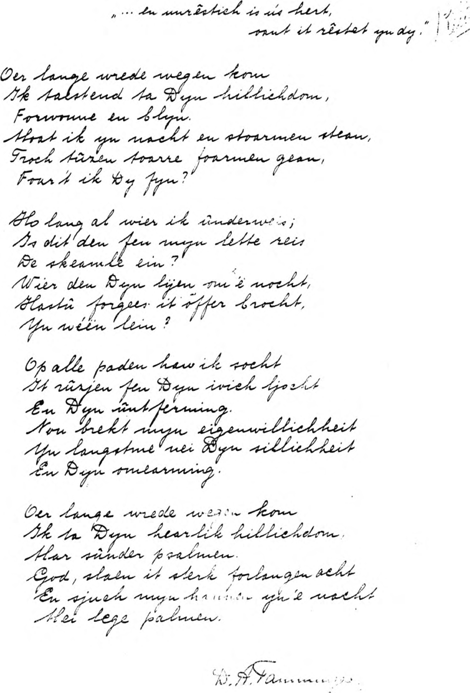 "... en unrêstich is ús hert,
oant it rêstet yn dy."
Oer lange wrede wegen kom
Ik taestend ta Dyn hillichdom,
Forwoune en blyn.
Moat ik yn nacht en stoarmen stean,
Troch tûzen toarre foarmen gean,
Foar't ik Dy fyn?
Ho lang al wier ik ûnderweis;
Is dit den fen myn lette reis
De skeamle ein?
Wier den Dyn lijen om 'e nocht,
Hastû forgees it offer brocht,
Yn wéën lein?
Op alle paden haw ik socht
It rûzjen fen Dyn ivich ljocht
En Dyn ûntferming.
Nou brekt myn eigenwillichheit
Yn langstme nei Dyn sillichheit
En Dyn omearming.
Oer lange wrede wegen kom
Ik ta Dyn hearlik hillichdom.
Mar sûnder psalmen.
God, slaen it sterk forlangen acht
En sjuch myn hannen yn 'e nacht
Mei lege palmen.
D. A. Tamminga